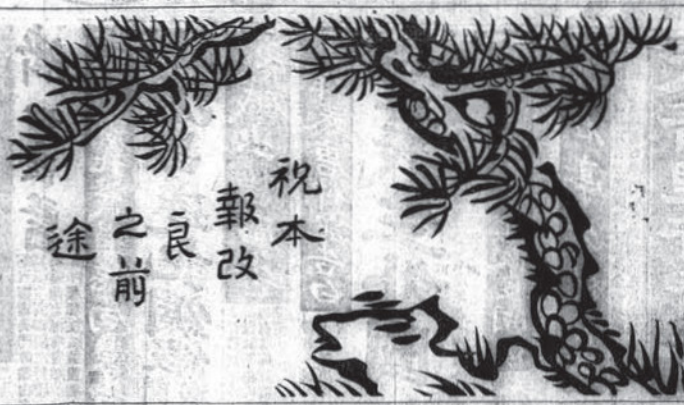 祝本
報改
良
之前
途